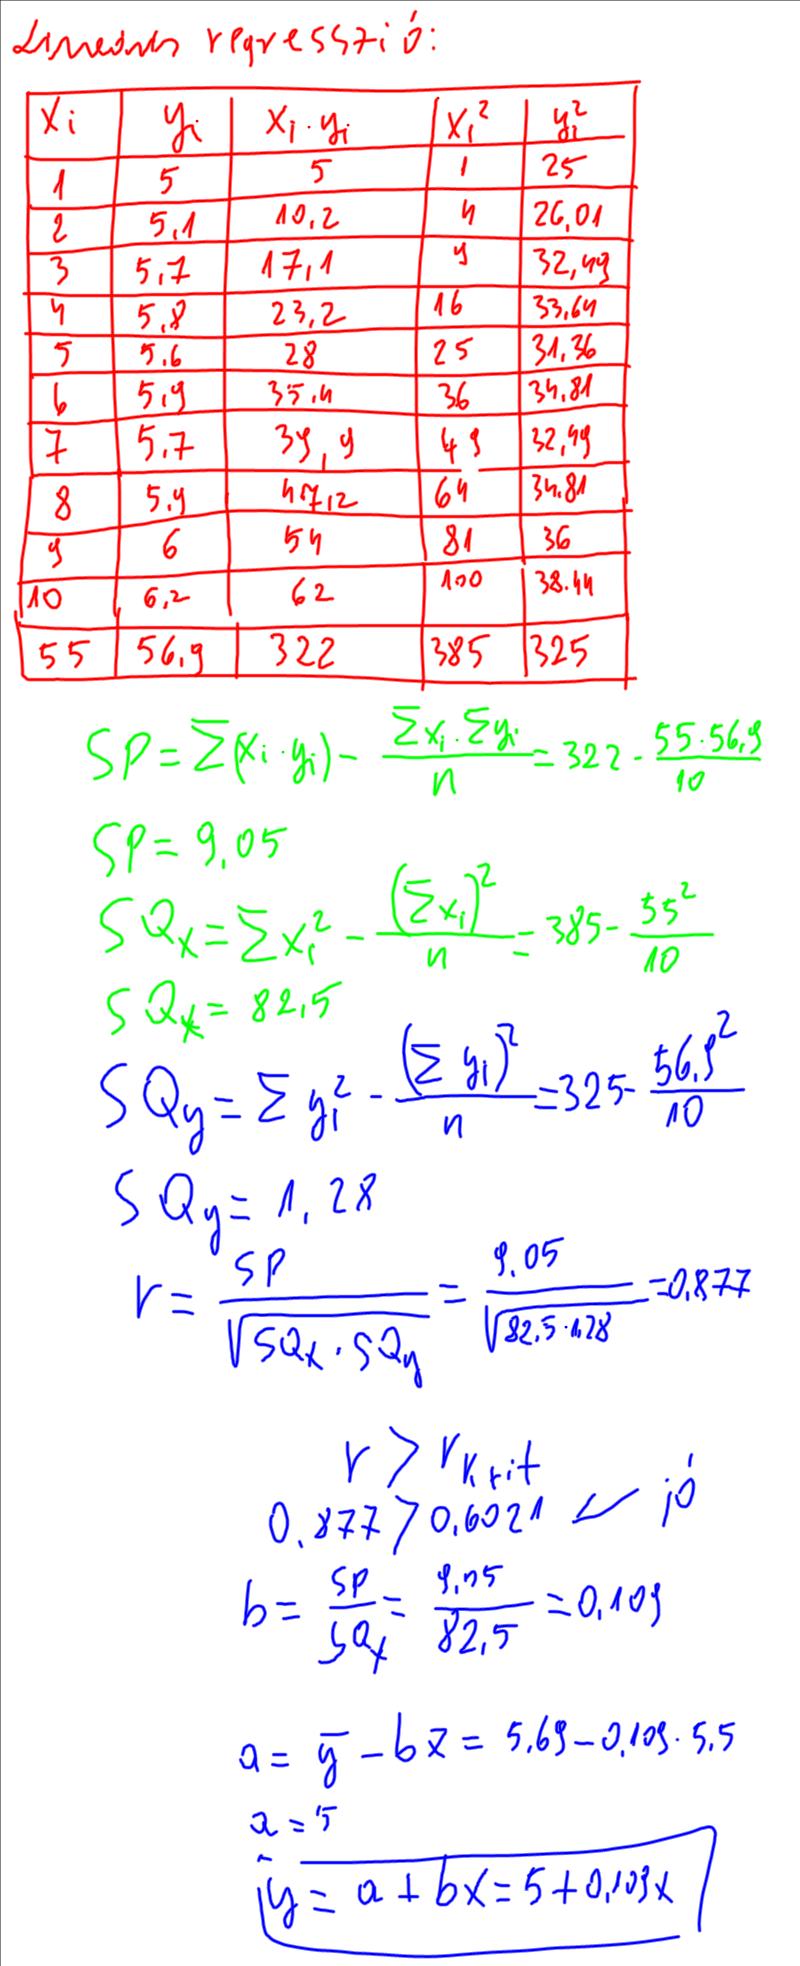 Lineáris regresszió:
xi yi xi·yi xi² yi²
1 5 5 1 25
2 5,1 10,2 4 26,01
3 5,7 17,1 9 32,49
4 5,8 23,2 16 33,64
5 5,6 28 25 31,36
6 5,9 35,4 36 34,81
7 5,7 39,9 49 32,49
8 5,9 47,2 64 34.81
9 6 54 81 36
10 6,2 62 100 38.44
55 56,9 322 385 325
SP = Σ(xi·yi) - Σxi·Σyi / n = 322 - 55·56,9 / 10
SP = 9,05
SQx = Σxi² - (Σxi)² / n = 385 - 55² / 10
SQx = 82,5
SQy = Σyi² - (Σyi)² / n = 325 - 56,9² / 10
SQy = 1,28
r = SP / √SQx·SQy = 9.05 / √82,5·1,28 = 0,877
r > rkrit
0,877 > 0,6021 ✓ jó
b = SP / SQx = 9,05 / 82,5 = 0,109
a = ȳ - bx̄ = 5,69 - 0,109·5,5
a = 5
ŷ = a + bx = 5 + 0,109x